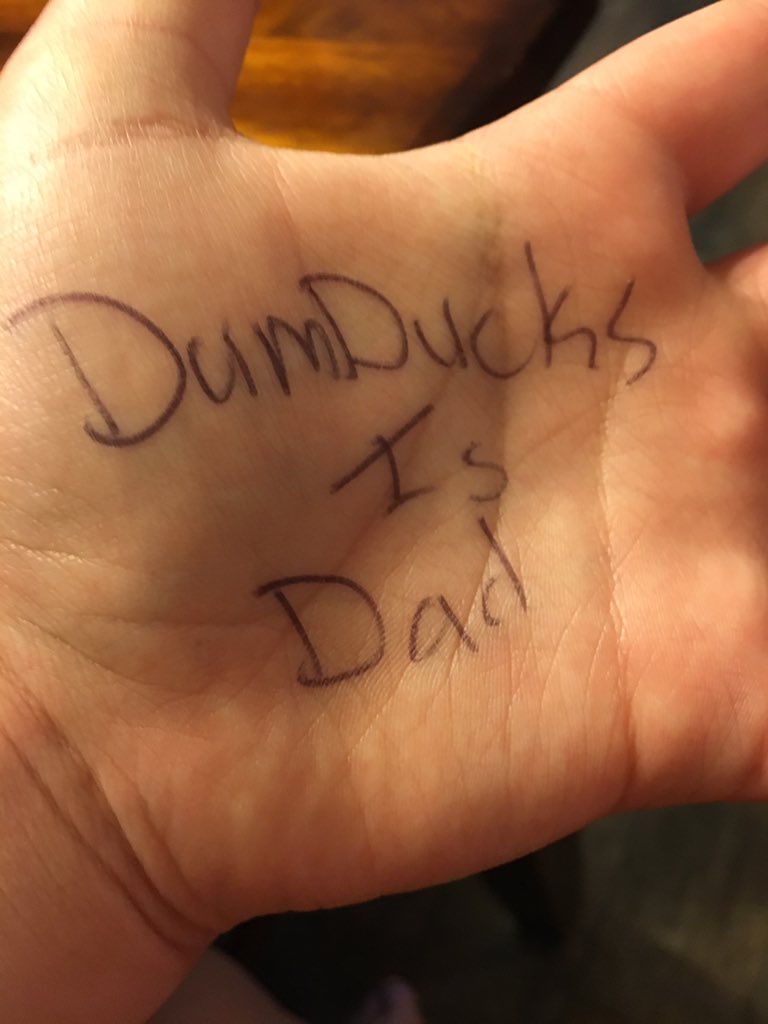 DumDucks
Is
Dad